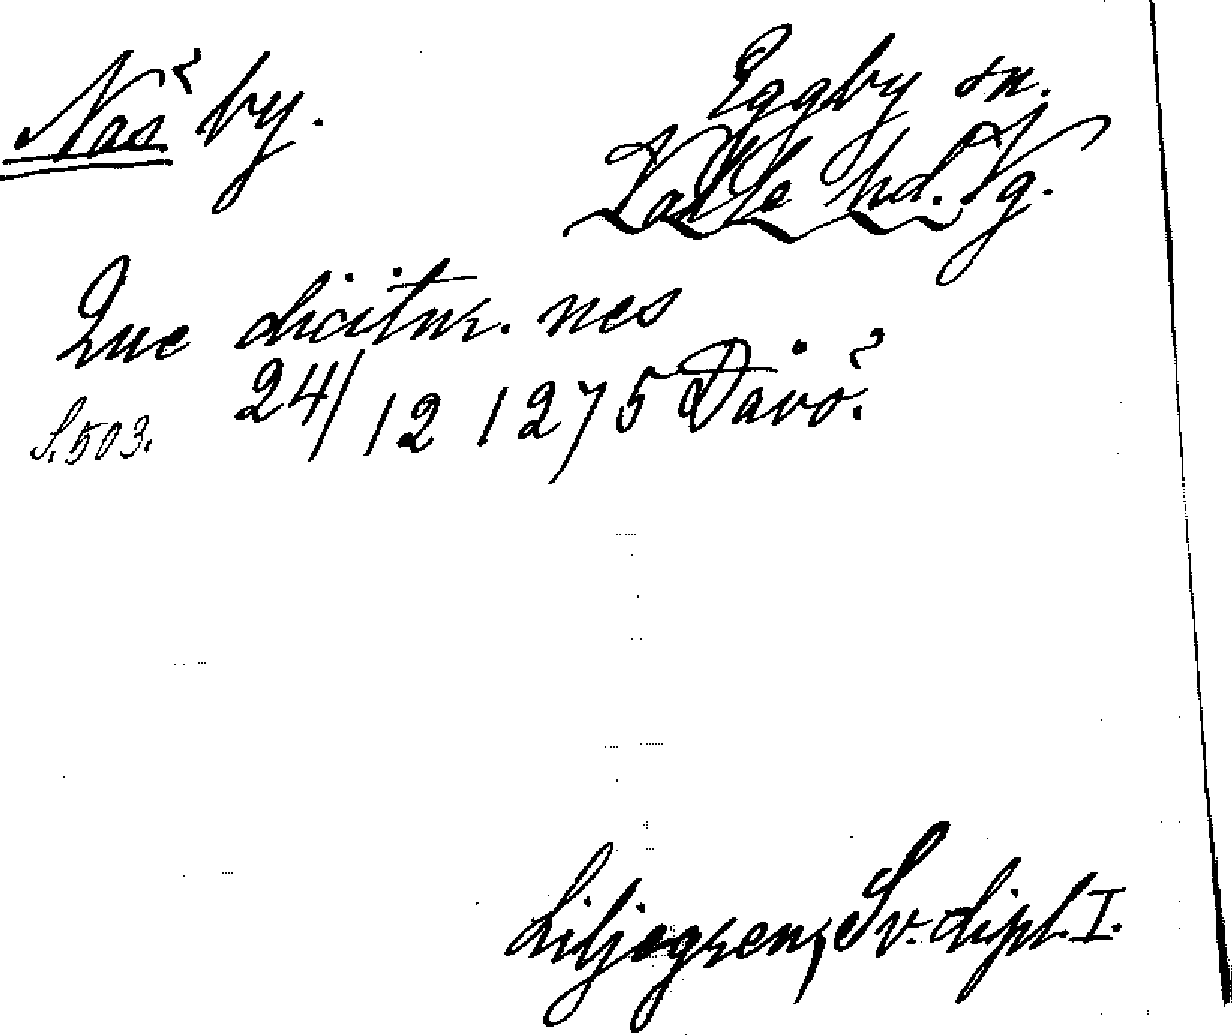 Näs by.
Eggby sn.
Valle hd. Vg.
Que dicitur. nes
24/12 1275 Dävö?
S. 503.
Liljegren, Sv. dipl. I.